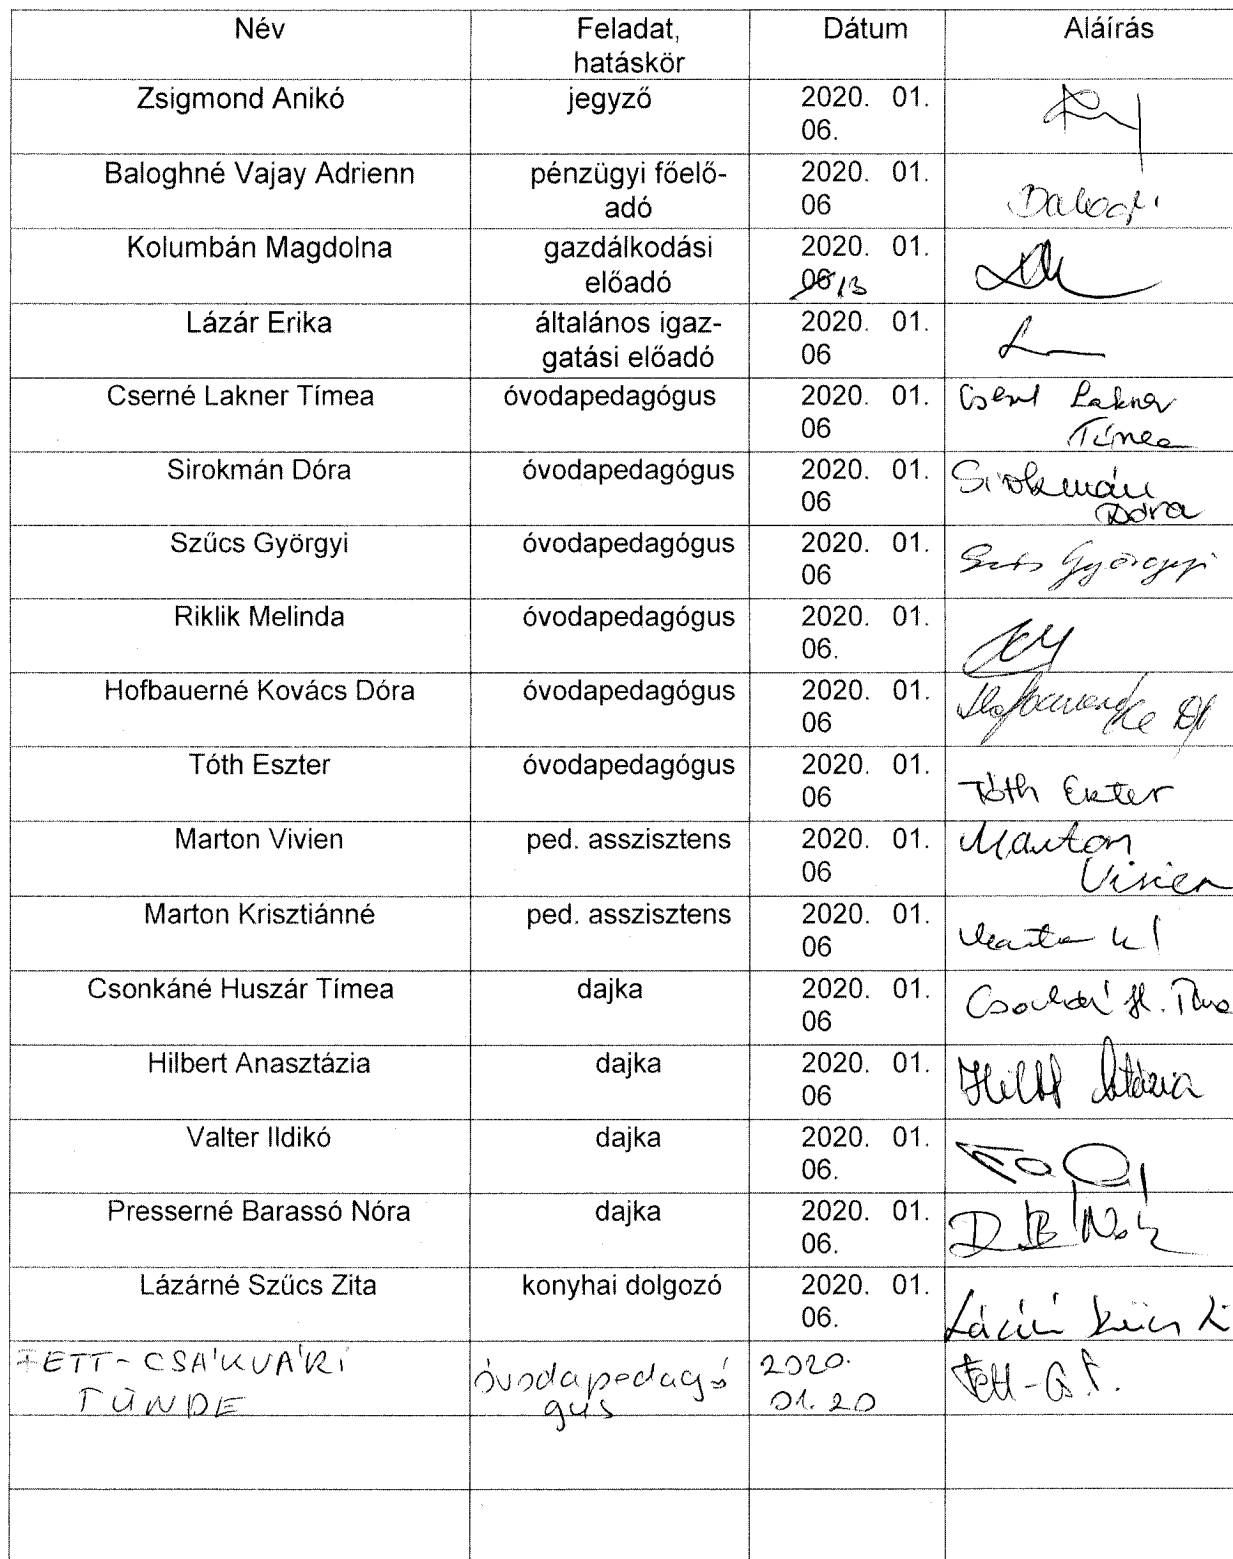 Név Feladat, Dátum Aláírás
hatáskör
Zsigmond Anikó jegyző 2020. 01.
06.
Baloghné Vajay Adrienn pénzügyi főelő- 2020. 01.
adó 06
Balogh
Kolumbán Magdolna gazdálkodási 2020. 01.
előadó 06 13
Lázár Erika általános igaz- 2020. 01.
gatási előadó 06
Cserné Lakner Tímea óvodapedagógus 2020. 01. Cserné Lakner
06 Tímea
Sirokmán Dóra óvodapedagógus 2020. 01. Sirokmán
06 Dóra
Szűcs Györgyi óvodapedagógus 2020. 01.
06 Szűcs Györgyi
Riklik Melinda óvodapedagógus 2020. 01.
06.
Hofbauerné Kovács Dóra óvodapedagógus 2020. 01.
06
Tóth Eszter óvodapedagógus 2020. 01.
06 Tóth Eszter
Marton Vivien ped. asszisztens 2020. 01. Marton
06 Vivien
Marton Krisztiánné ped. asszisztens 2020. 01.
06
Csonkáné Huszár Tímea dajka 2020. 01.
06
Hilbert Anasztázia dajka 2020. 01.
06
Valter Ildikó dajka 2020. 01.
06.
Presserné Barassó Nóra dajka 2020. 01.
06.
Lázárné Szűcs Zita konyhai dolgozó 2020. 01.
06.
FETT-CSÁKVÁRI óvodapedagó 2020. Fett-Cs. T.
TÜNDE gus 01.20